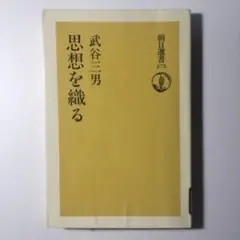 朝日選書
武谷三男
思想を織る